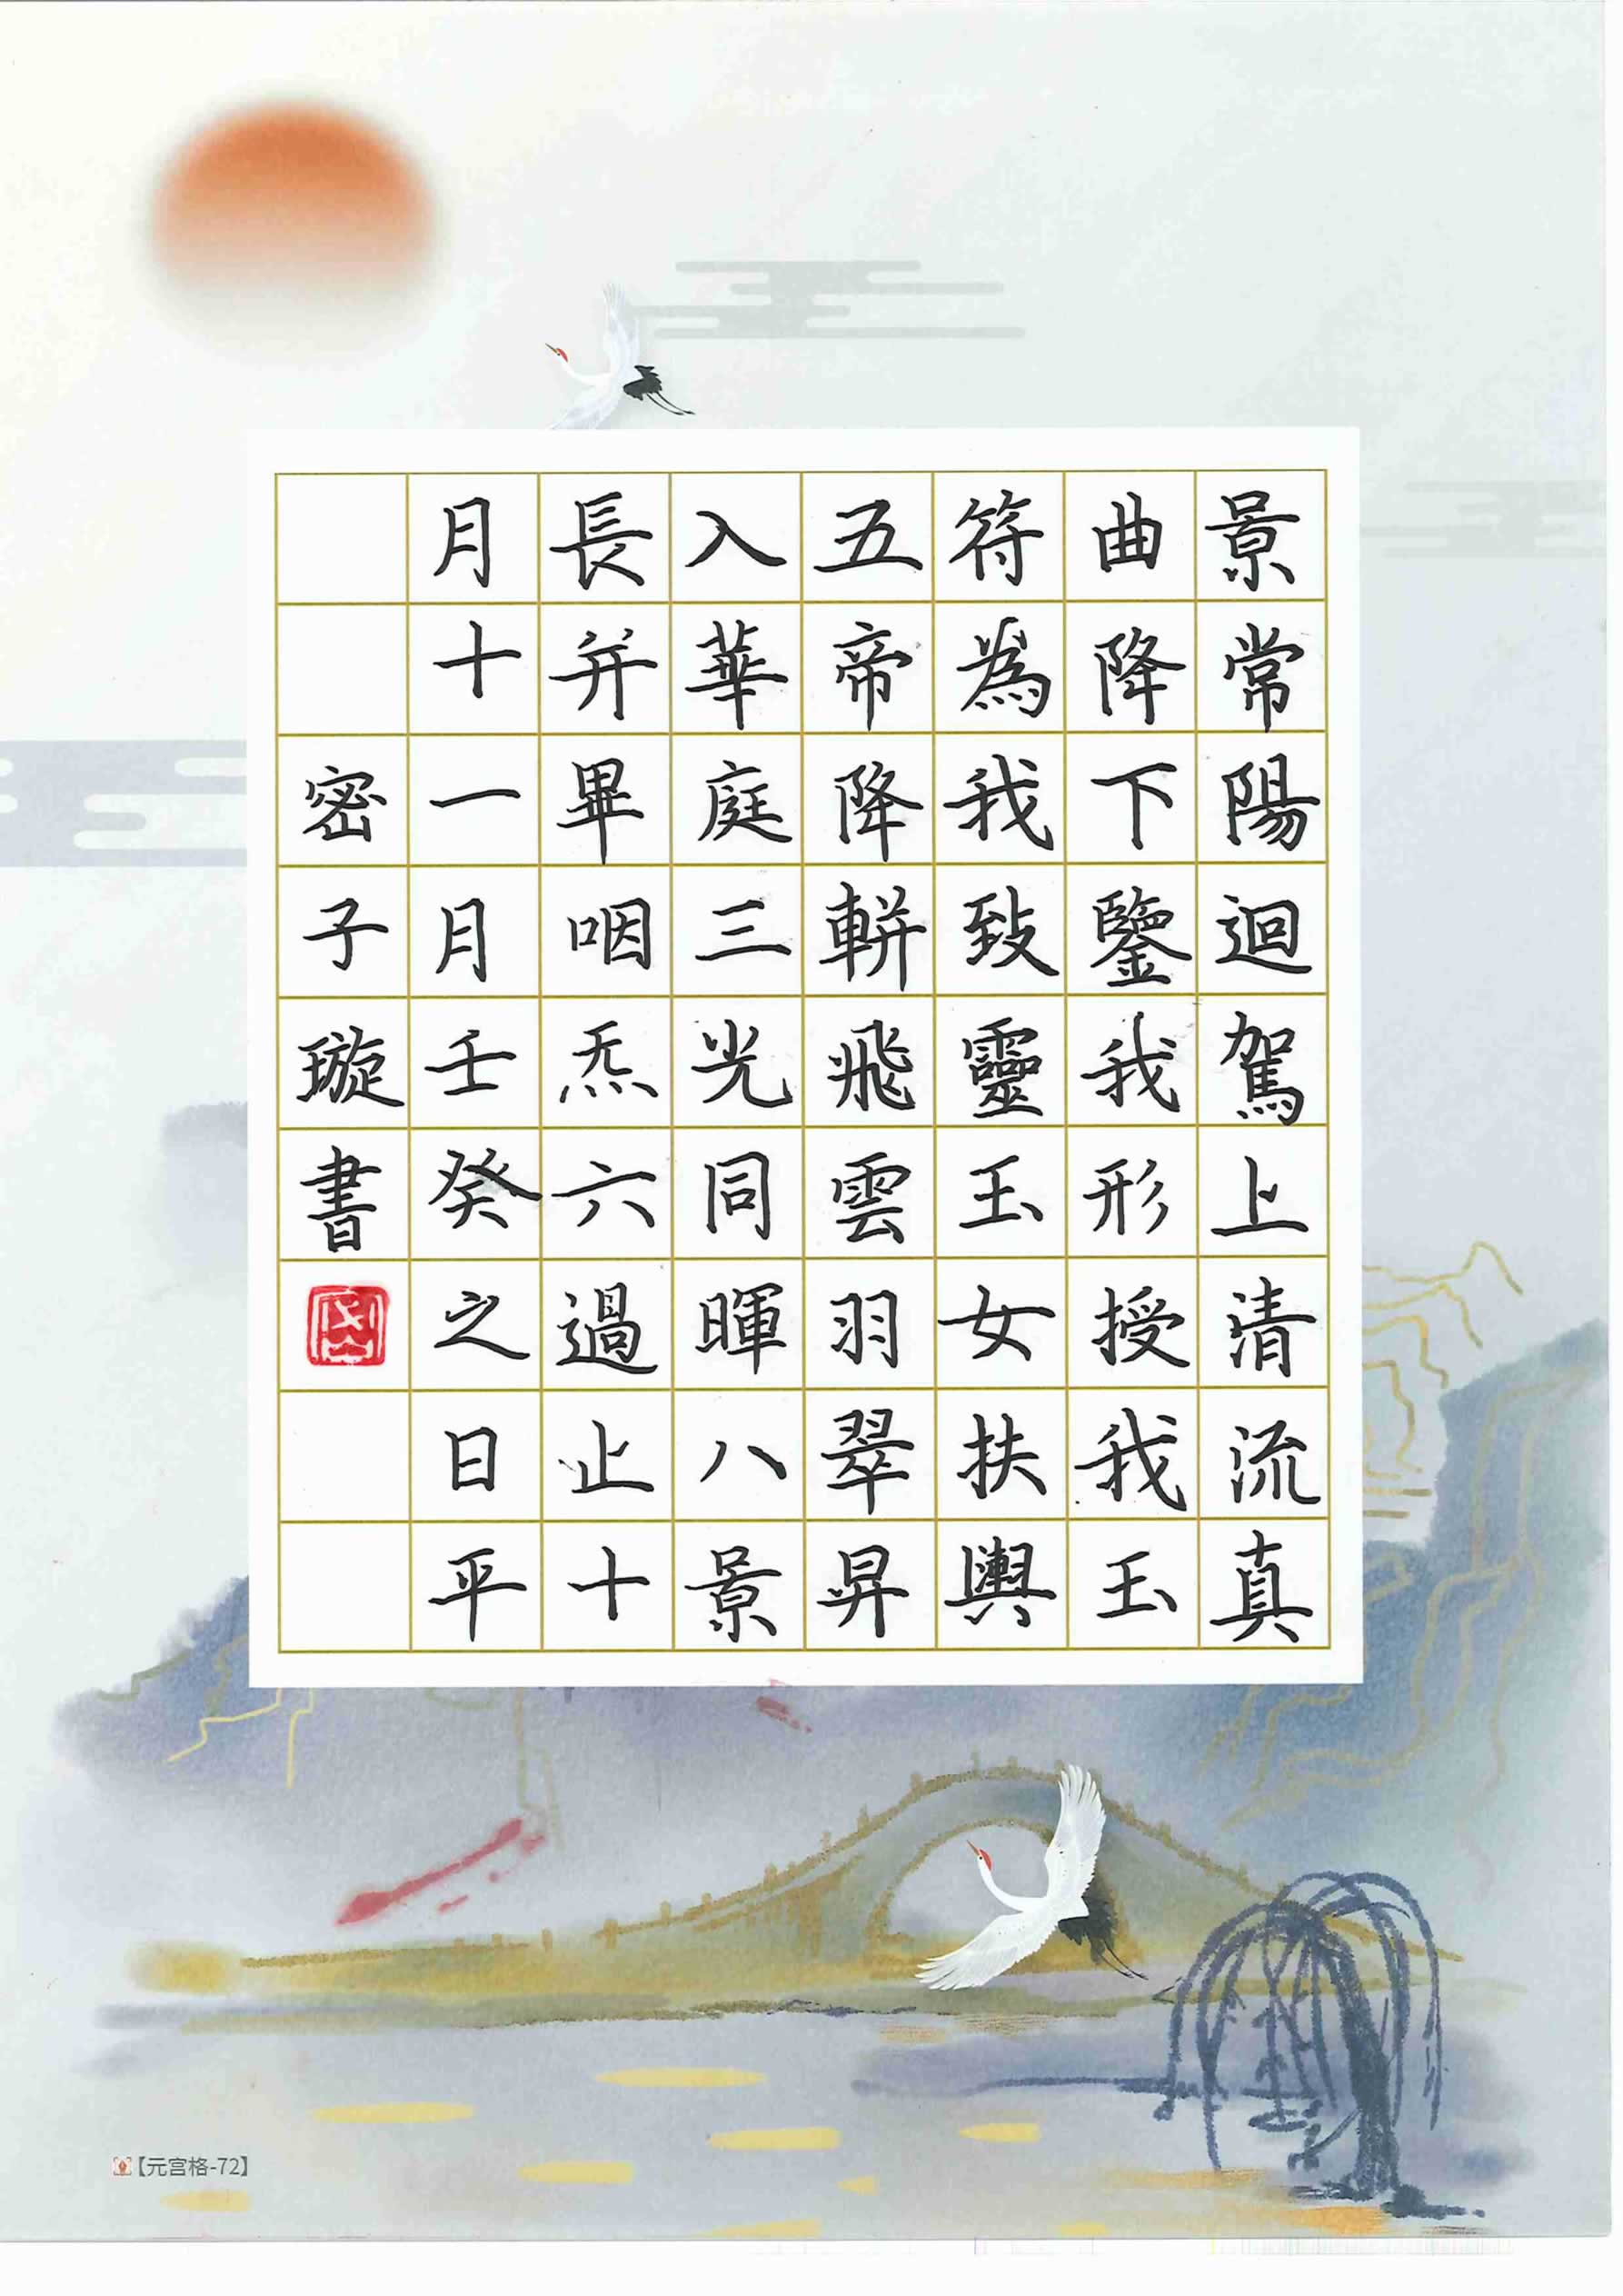 景常陽迴駕上清流真
曲降下鑒我形授我玉
符為我致靈玉女扶輿
五帝降軿飛雲羽翠昇
入華庭三光同暉八景
長并畢咽炁六過止十
月十一月壬癸之日平
密子璇書
【元宫格-72】